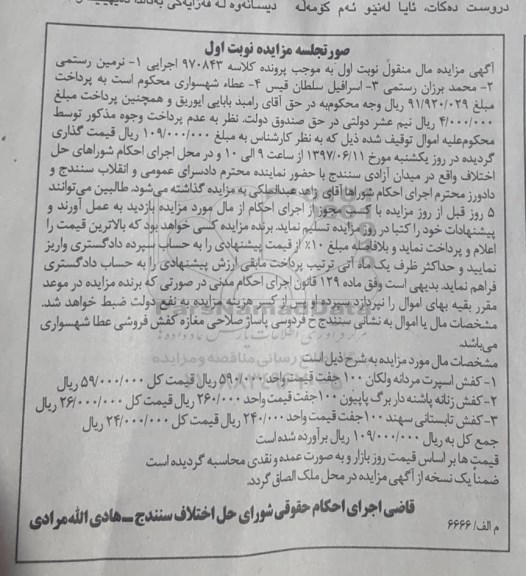 دروست دەکات، ئایا لەنێو ئەم کۆمەڵە
صورتجلسه مزایده نوبت اول
آگهی مزایده مال منقول نوبت اول به موجب پرونده کلاسه ۹۷۰۸۴۳ اجرایی ۱- نرمین رستمی
۲- محمد برزان رستمی ۳- اسرافیل سلطان قیس ۴- عطاء شهسواری محکوم است به پرداخت
مبلغ ۹۱/۹۲۰/۰۲۹ ریال وجه محکوم‌به در حق آقای رامبد بابایی ایوریق و همچنین پرداخت مبلغ
۴/۰۰۰/۰۰۰ ریال نیم عشر دولتی در حق صندوق دولت. نظر به عدم پرداخت وجوه مذکور توسط
محکوم‌علیه اموال توقیف شده ذیل که به نظر کارشناس به مبلغ ۱۰۹/۰۰۰/۰۰۰ ریال قیمت گذاری
گردیده در روز یکشنبه مورخ ۱۳۹۷/۰۶/۱۱ از ساعت ۹ الی ۱۰ و در محل اجرای احکام شوراهای حل
اختلاف واقع در میدان آزادی سنندج با حضور نماینده محترم دادسرای عمومی و انقلاب سنندج و
دادورز محترم اجرای احکام شوراها آقای زاهد عبدالملکی به مزایده گذاشته می‌شود. طالبین می‌توانند
۵ روز قبل از روز مزایده با کسب مجوز از اجرای احکام از مال مورد مزایده بازدید به عمل آورند و
پیشنهادات خود را کتبا در روز مزایده تسلیم نماید. برنده مزایده کسی خواهد بود که بالاترین قیمت را
اعلام و پرداخت نماید و بلافاصله مبلغ ۱۰٪ از قیمت پیشنهادی را به حساب سپرده دادگستری واریز
نمایید و حداکثر ظرف یک‌ماه آتی ترتیب پرداخت مابقی ارزش پیشنهادی را به حساب دادگستری
فراهم نماید. بدیهی است وفق ماده ۱۲۹ قانون اجرای احکام مدنی در صورتی که برنده مزایده در موعد
مقرر بقیه بهای اموال را نپردازد سپرده او پس از کسر هزینه مزایده به نفع دولت ضبط خواهد شد.
مشخصات مال یا اموال به نشانی سنندج خ فردوسی پاساژ صلاحی مغازه کفش فروشی عطا شهسواری
می‌باشد.
مشخصات مال مورد مزایده به شرح ذیل است
۱- کفش اسپرت مردانه ولکان ۱۰۰ جفت قیمت واحد ۵۹۰/۰۰۰ ریال قیمت کل ۵۹/۰۰۰/۰۰۰ ریال
۲- کفش زنانه پاشنه دار برگ پاپیون ۱۰۰ جفت قیمت واحد ۲۶۰/۰۰۰ ریال قیمت کل ۲۶/۰۰۰/۰۰۰ ریال
۳- کفش تابستانی سهند ۱۰۰ جفت قیمت واحد ۲۴۰/۰۰۰ ریال قیمت کل ۲۴/۰۰۰/۰۰۰ ریال
جمع کل به ریال ۱۰۹/۰۰۰/۰۰۰ ریال برآورده شده است
قیمت ها بر اساس قیمت روز بازار و به صورت عمده و نقدی محاسبه گردیده است
ضمنا یک نسخه از آگهی مزایده در محل ملک الصاق گردد.
قاضی اجرای احکام حقوقی شورای حل اختلاف سنندج ـ هادی الله مرادی
م الف/ ۶۶۶۶